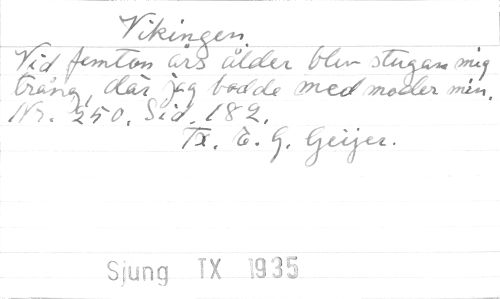 Vikingen.
Vid femton års ålder blev stugan mig
trång, där jag bodde med moder min.
Nr. 250. Sid. 182.
Tx. E. G. Geijer.
Sjung TX 1935